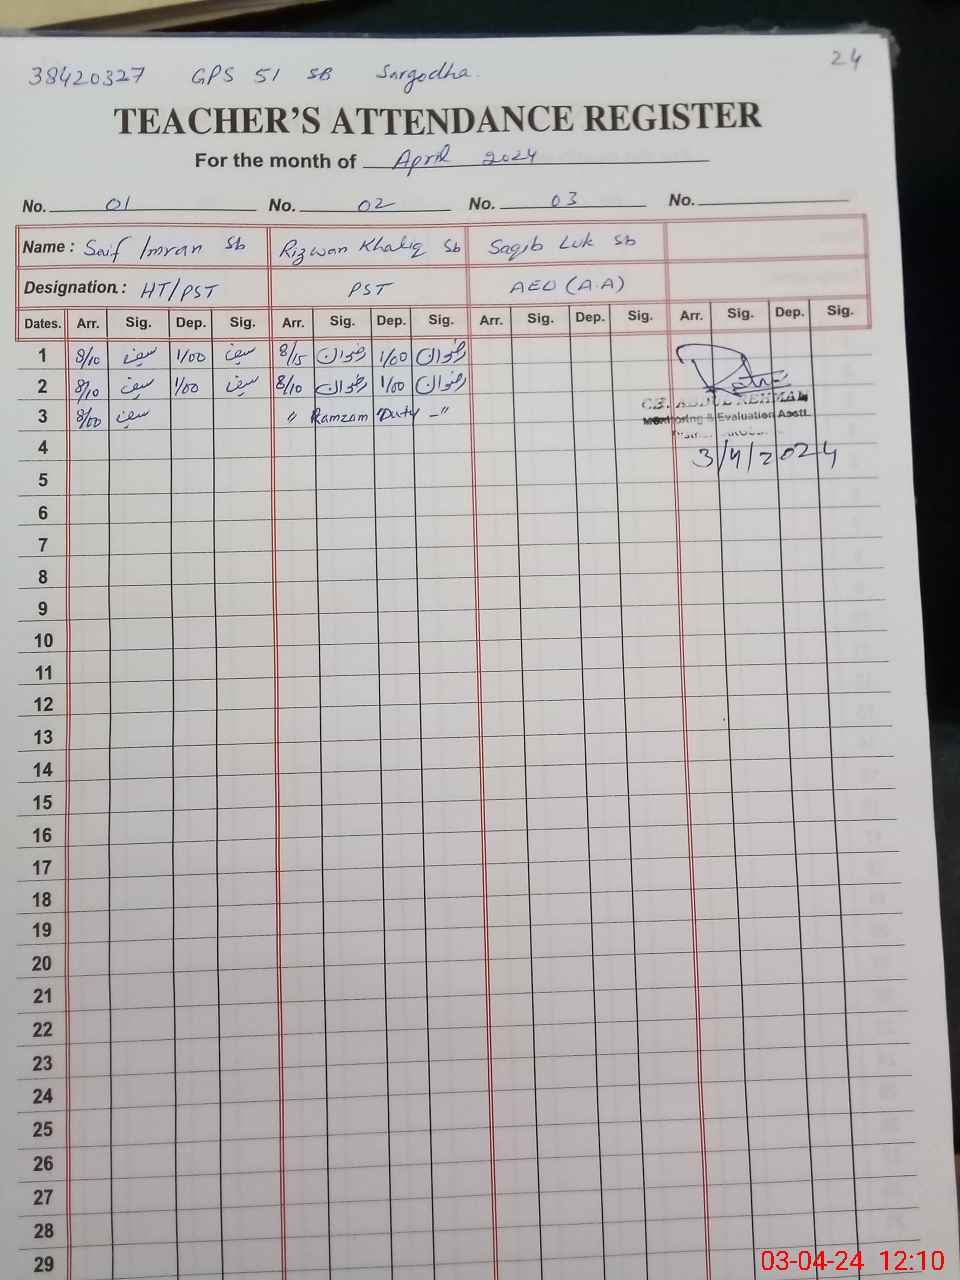 24
38420327 GPS 51 SB Sargodha.
TEACHER'S ATTENDANCE REGISTER
For the month of April 2024
No. 01 No. 02 No. 03 No.
Name : Saif Imran Sb Rizwan Khaliq Sb Saqib Luk Sb
Designation : HT/PST PST AEO (A.A)
Dates. Arr. Sig. Dep. Sig. Arr. Sig. Dep. Sig. Arr. Sig. Dep. Sig. Arr. Sig. Dep. Sig.
1 8/10 سیف 1/00 سیف 8/15 رضوان 1/00 رضوان
2 8/10 سیف 1/00 سیف 8/10 رضوان 1/00 رضوان
3 8/00 سیف " Ramzam Duty -"
CH. ABDUL REHMAN
Monitoring & Evaluation Asstt.
3/4/2024
4
5
6
7
8
9
10
11
12
13
14
15
16
17
18
19
20
21
22
23
24
25
26
27
28
29
03-04-24 12:10